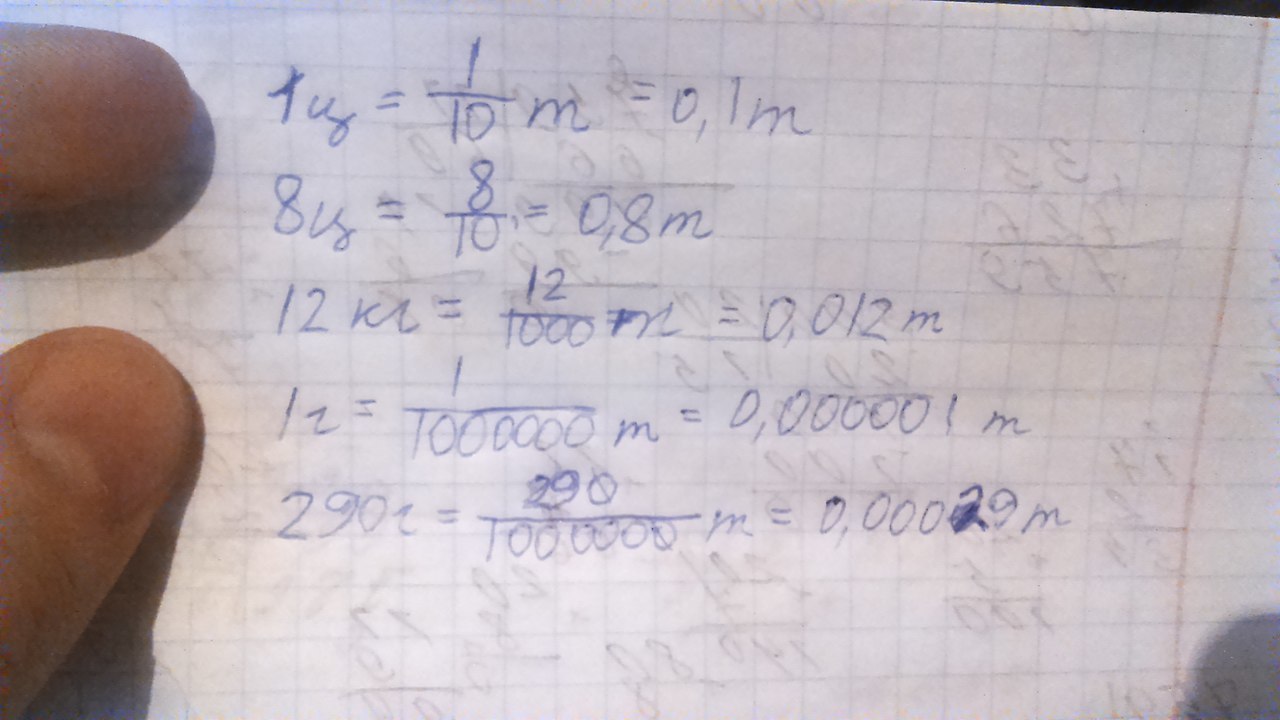 1ц = 1/10 т = 0,1т
8ц = 8/10 = 0,8т
12 кг = 12/1000 т = 0,012 т
1г = 1/1000000 т = 0,000001 т
290г = 290/1000000 т = 0,00029 т